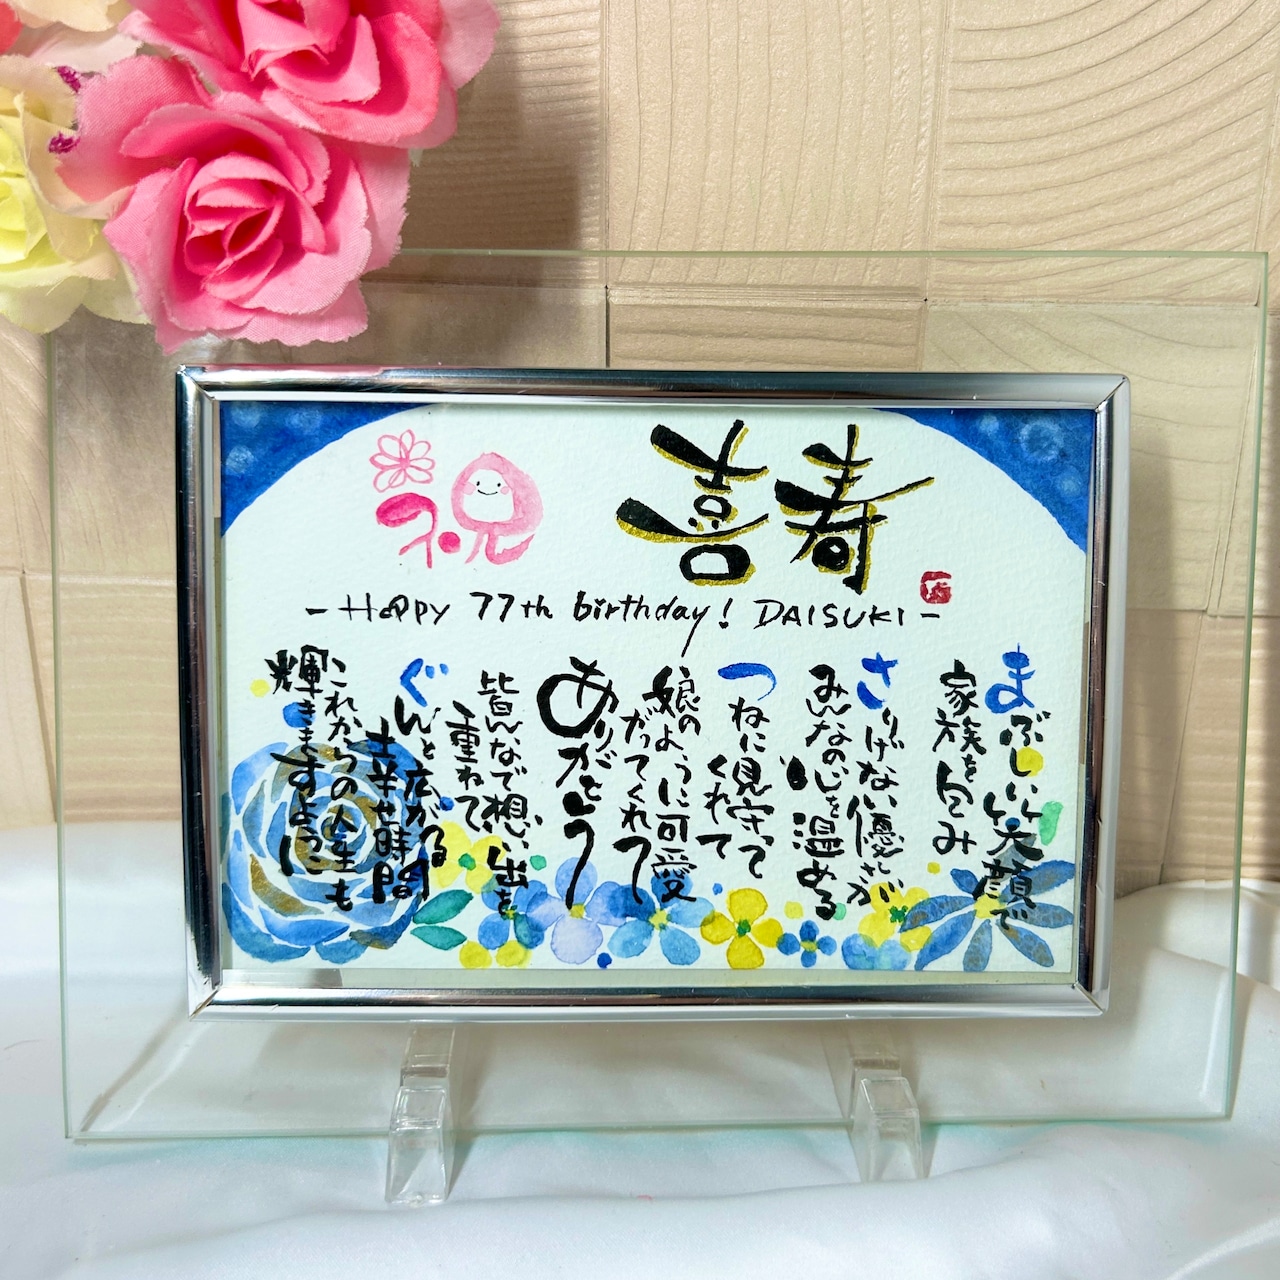 祝 喜寿
- Happy 77th birthday! DAISUKI -
まぶしい笑顔で
家族を包み
さりげない優しさが
みんなの心を温める
つねに見守って
くれて
娘のように可愛
がってくれて
ありがとう
皆んなで想い出を
重ねて
ぐんと広がる
幸せ時間
これからの人生も
輝きますように